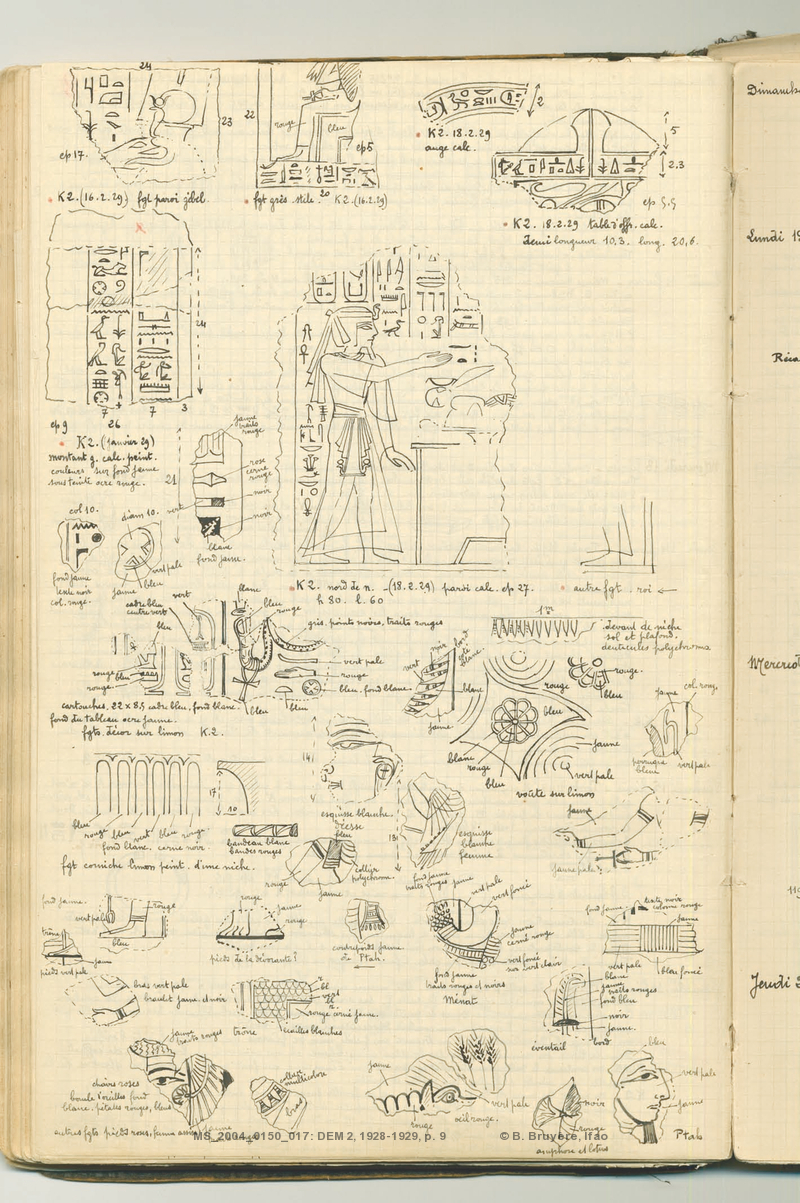 24
23
ep 17.
• K2. (16.2.29) fgt paroi gébel.
22
rouge
bleu
ep 5
• fgt grès stèle. 20 K2. (16.2.29)
2
• K2. 18.2.29
auge calc.
5
2.3
ep 5.5
• K2. 18.2.29 table d'off. calc.
demi longueur 10,3. long. 20,6.
24
7
7
3
ep 9
26
• K2. (janvier 29)
montant g. calc. peint.
couleurs sur fond jaune
sous teinte ocre rouge.
21
jaune
traits
rouge
rose
cerné
rouge
noir
vert
noir
blanc
fond jaune.
col 10.
fond jaune
texte noir
col. rouge.
diam 10.
vert pale
bleu
jaune
• K2. nord de n. - (18.2.29) paroi calc. ep 27.
h 80. l. 60
• autre fgt. roi ←
cadre bleu
centre vert
vert
bleu
rouge
bleu
rouge
blanc
bleu
rouge
gris. points noirs, traits rouges
vert pale
rouge
bleu. fond blanc.
bleu
bleu
cartouches. 22 x 8,5 cadre bleu, fond blanc.
fond du tableau ocre jaune.
fgts. décor sur limon K2.
noir
vert
blanc
jaune
1m
devant de niche
sol et plafond.
denticules polychromes
rouge
rouge
bleu
bleu
jaune
blanc
rouge
bleu
vert pale
voûte sur limon
jaune
col. rouge
perruque
bleue
vert pale
17
10
bleu
rouge
bleu
vert
bleu
rouge
fond blanc. cerné noir
fgt corniche limon peint. d'une niche.
14
esquisse blanche.
déesse
bandeau blanc
bandes rouges
bleu
rouge
jaune
collier
polychrome.
13
esquisse
blanche
femme
fond jaune
jaune
jaune pale
fond jaune.
vert pale
rouge
bleu
trône
jaune
pieds vert pale
rouge
jaune
rouge
pieds de la dévorante?
contrepoids jaune
de Ptah.
←
vert pale
vert foncé
jaune
cerné rouge
vert foncé
sur vert clair
fond jaune
traits rouges et noirs
Ménat
fond jaune
texte noir
colonne rouge
jaune
vert pale
bleu foncé
bras vert pale
bracelet jaune et noir
trône
rouge cerné jaune.
écailles blanches
blanc
jaune
traits rouges
fond bleu
noir
jaune.
éventail
bord
jaune
traits rouges
chairs roses
boucle d'oreilles fond
blanc. pétales rouges, bleus
collier
multicolore
bras
jaune
vert pale
oeil rouge.
rouge
noir
rouge
amphore et lotus
bleu
vert pale
jaune
Ptah
MS_2004_0150_017: DEM 2, 1928-1929, p. 9
© B. Bruyère, Ifao
Lundi 19
Jeudi 2